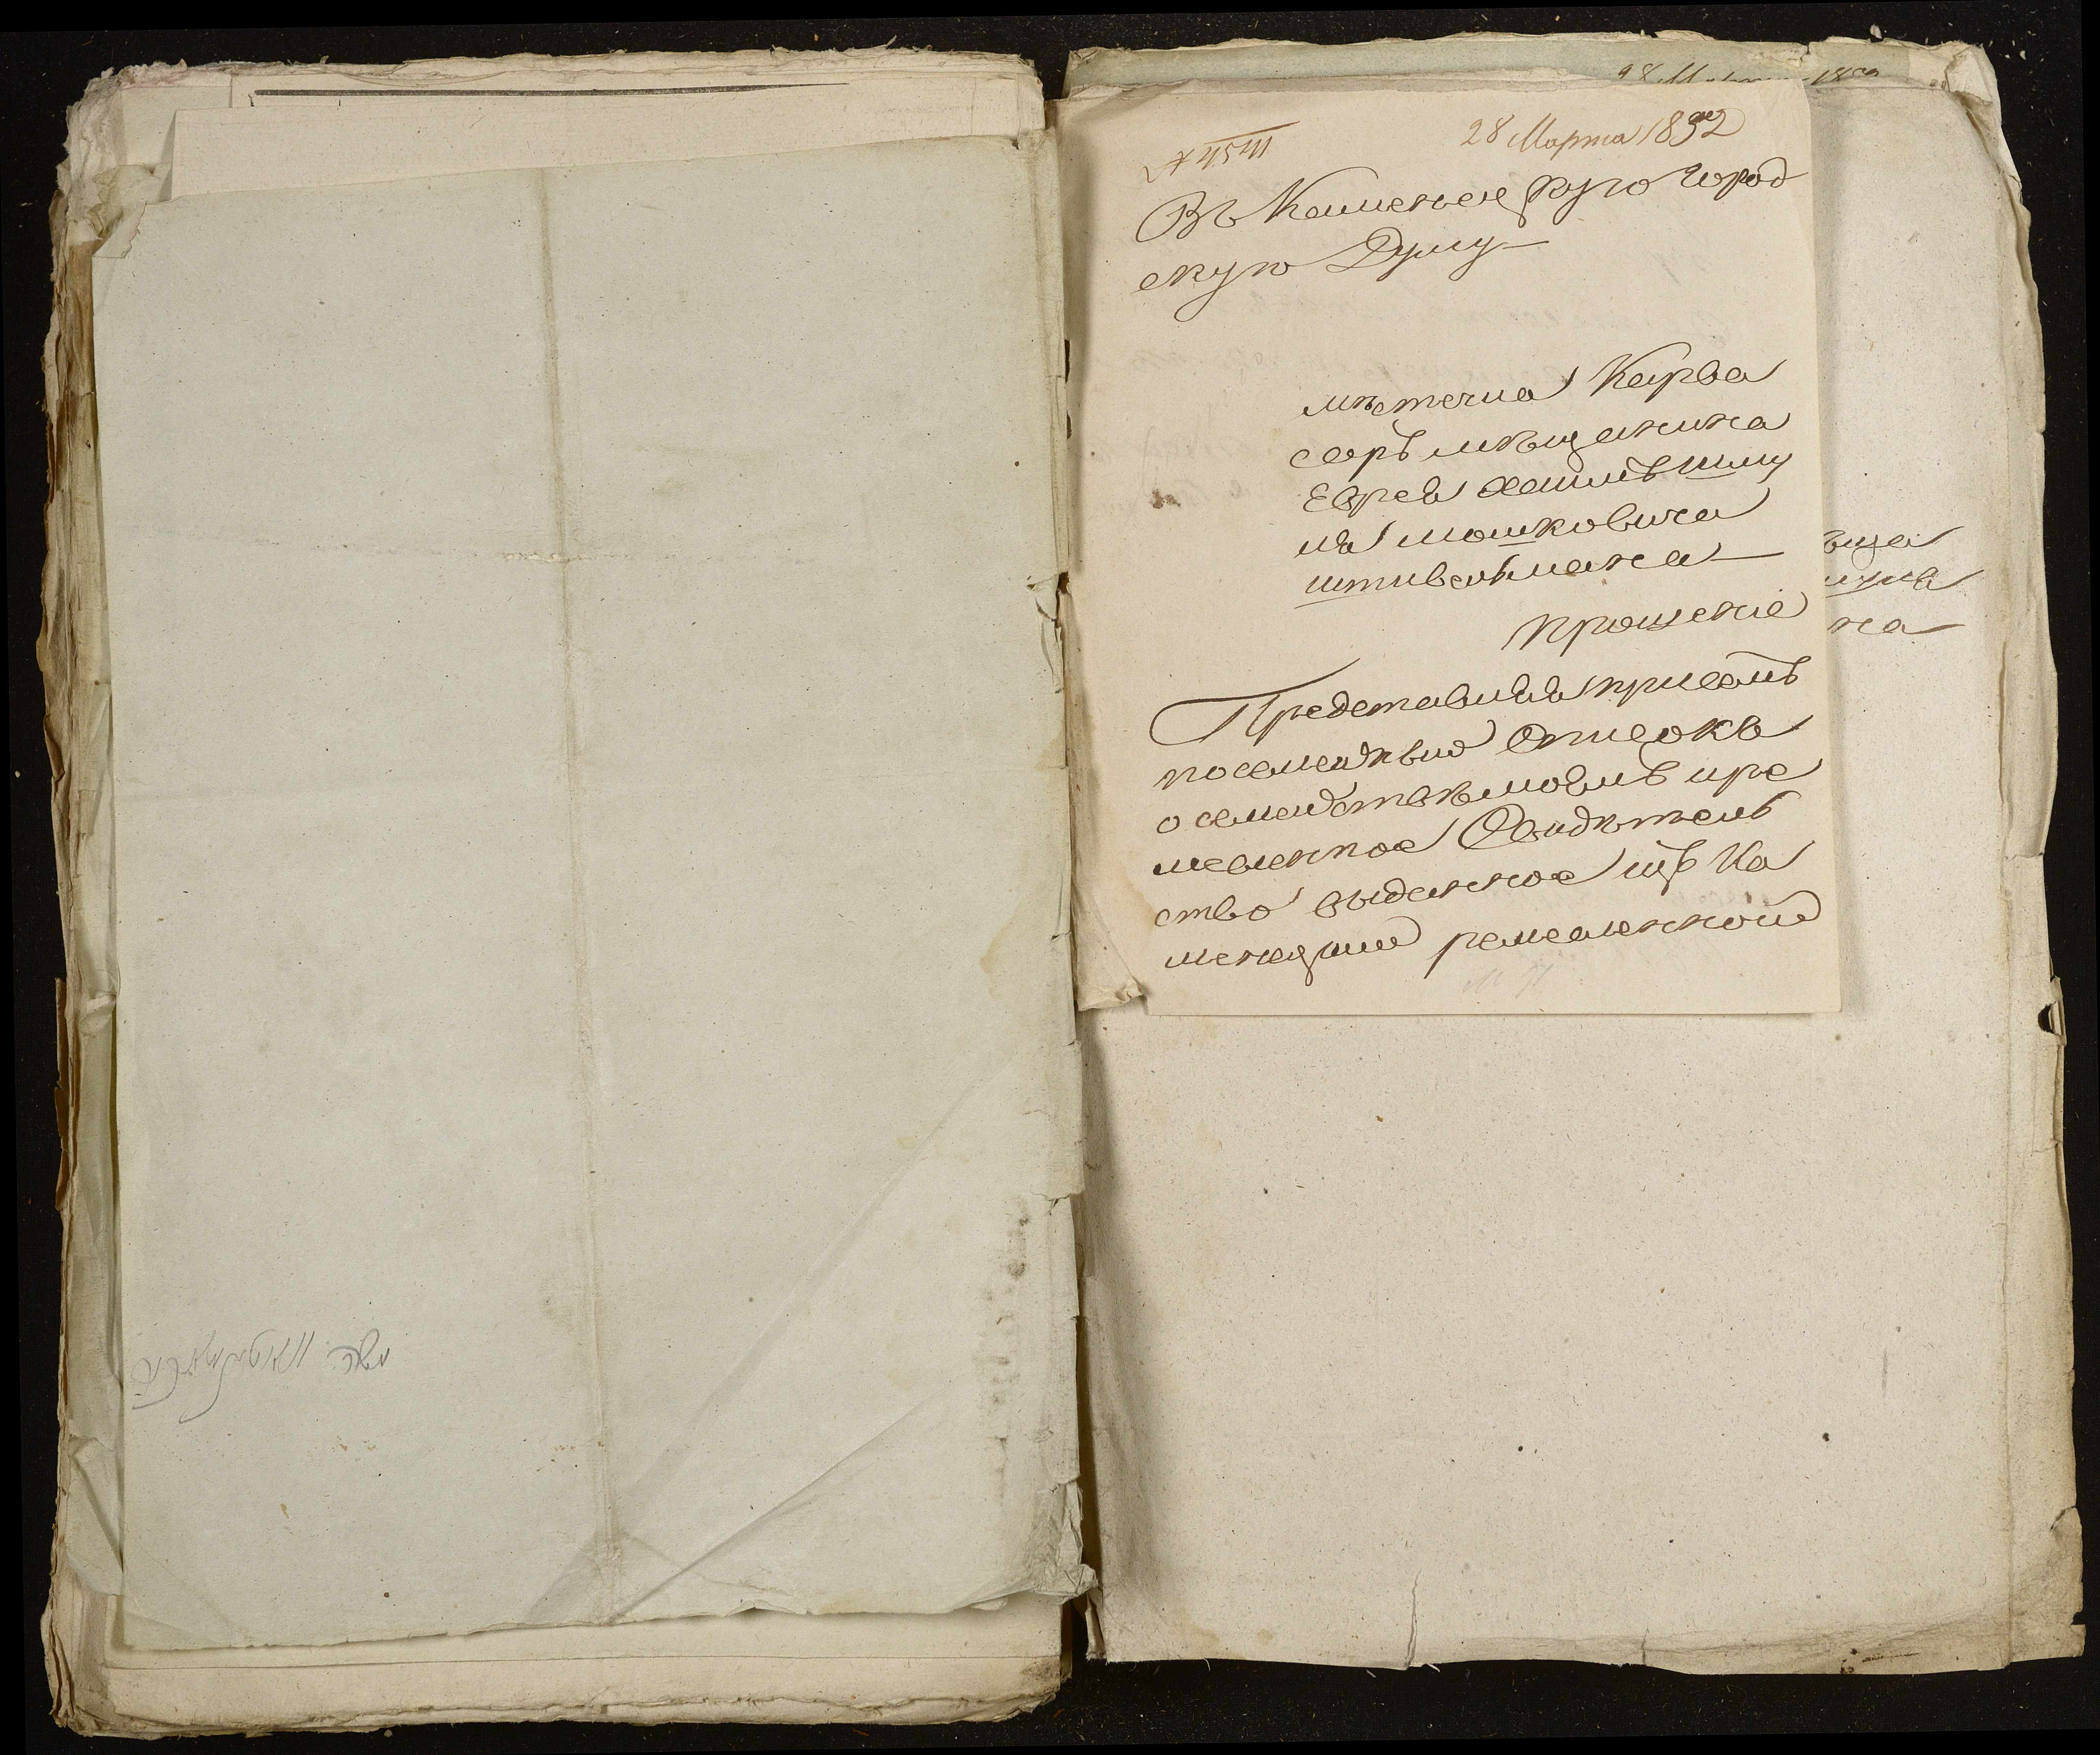 28 Марта 1852
Въ Каменецкую Город
скую Думу
мѣстечка Карва
саръ мѣщанина
Еврея Хаимъ Шму
ля Мошковича
Штивельмана
Прошеніе
Представляя присемъ
посемейный Списокъ
о семействѣ моемъ и ре
месленное Свидѣтель
ство выданное изъ Ка
менецкой ремесленной